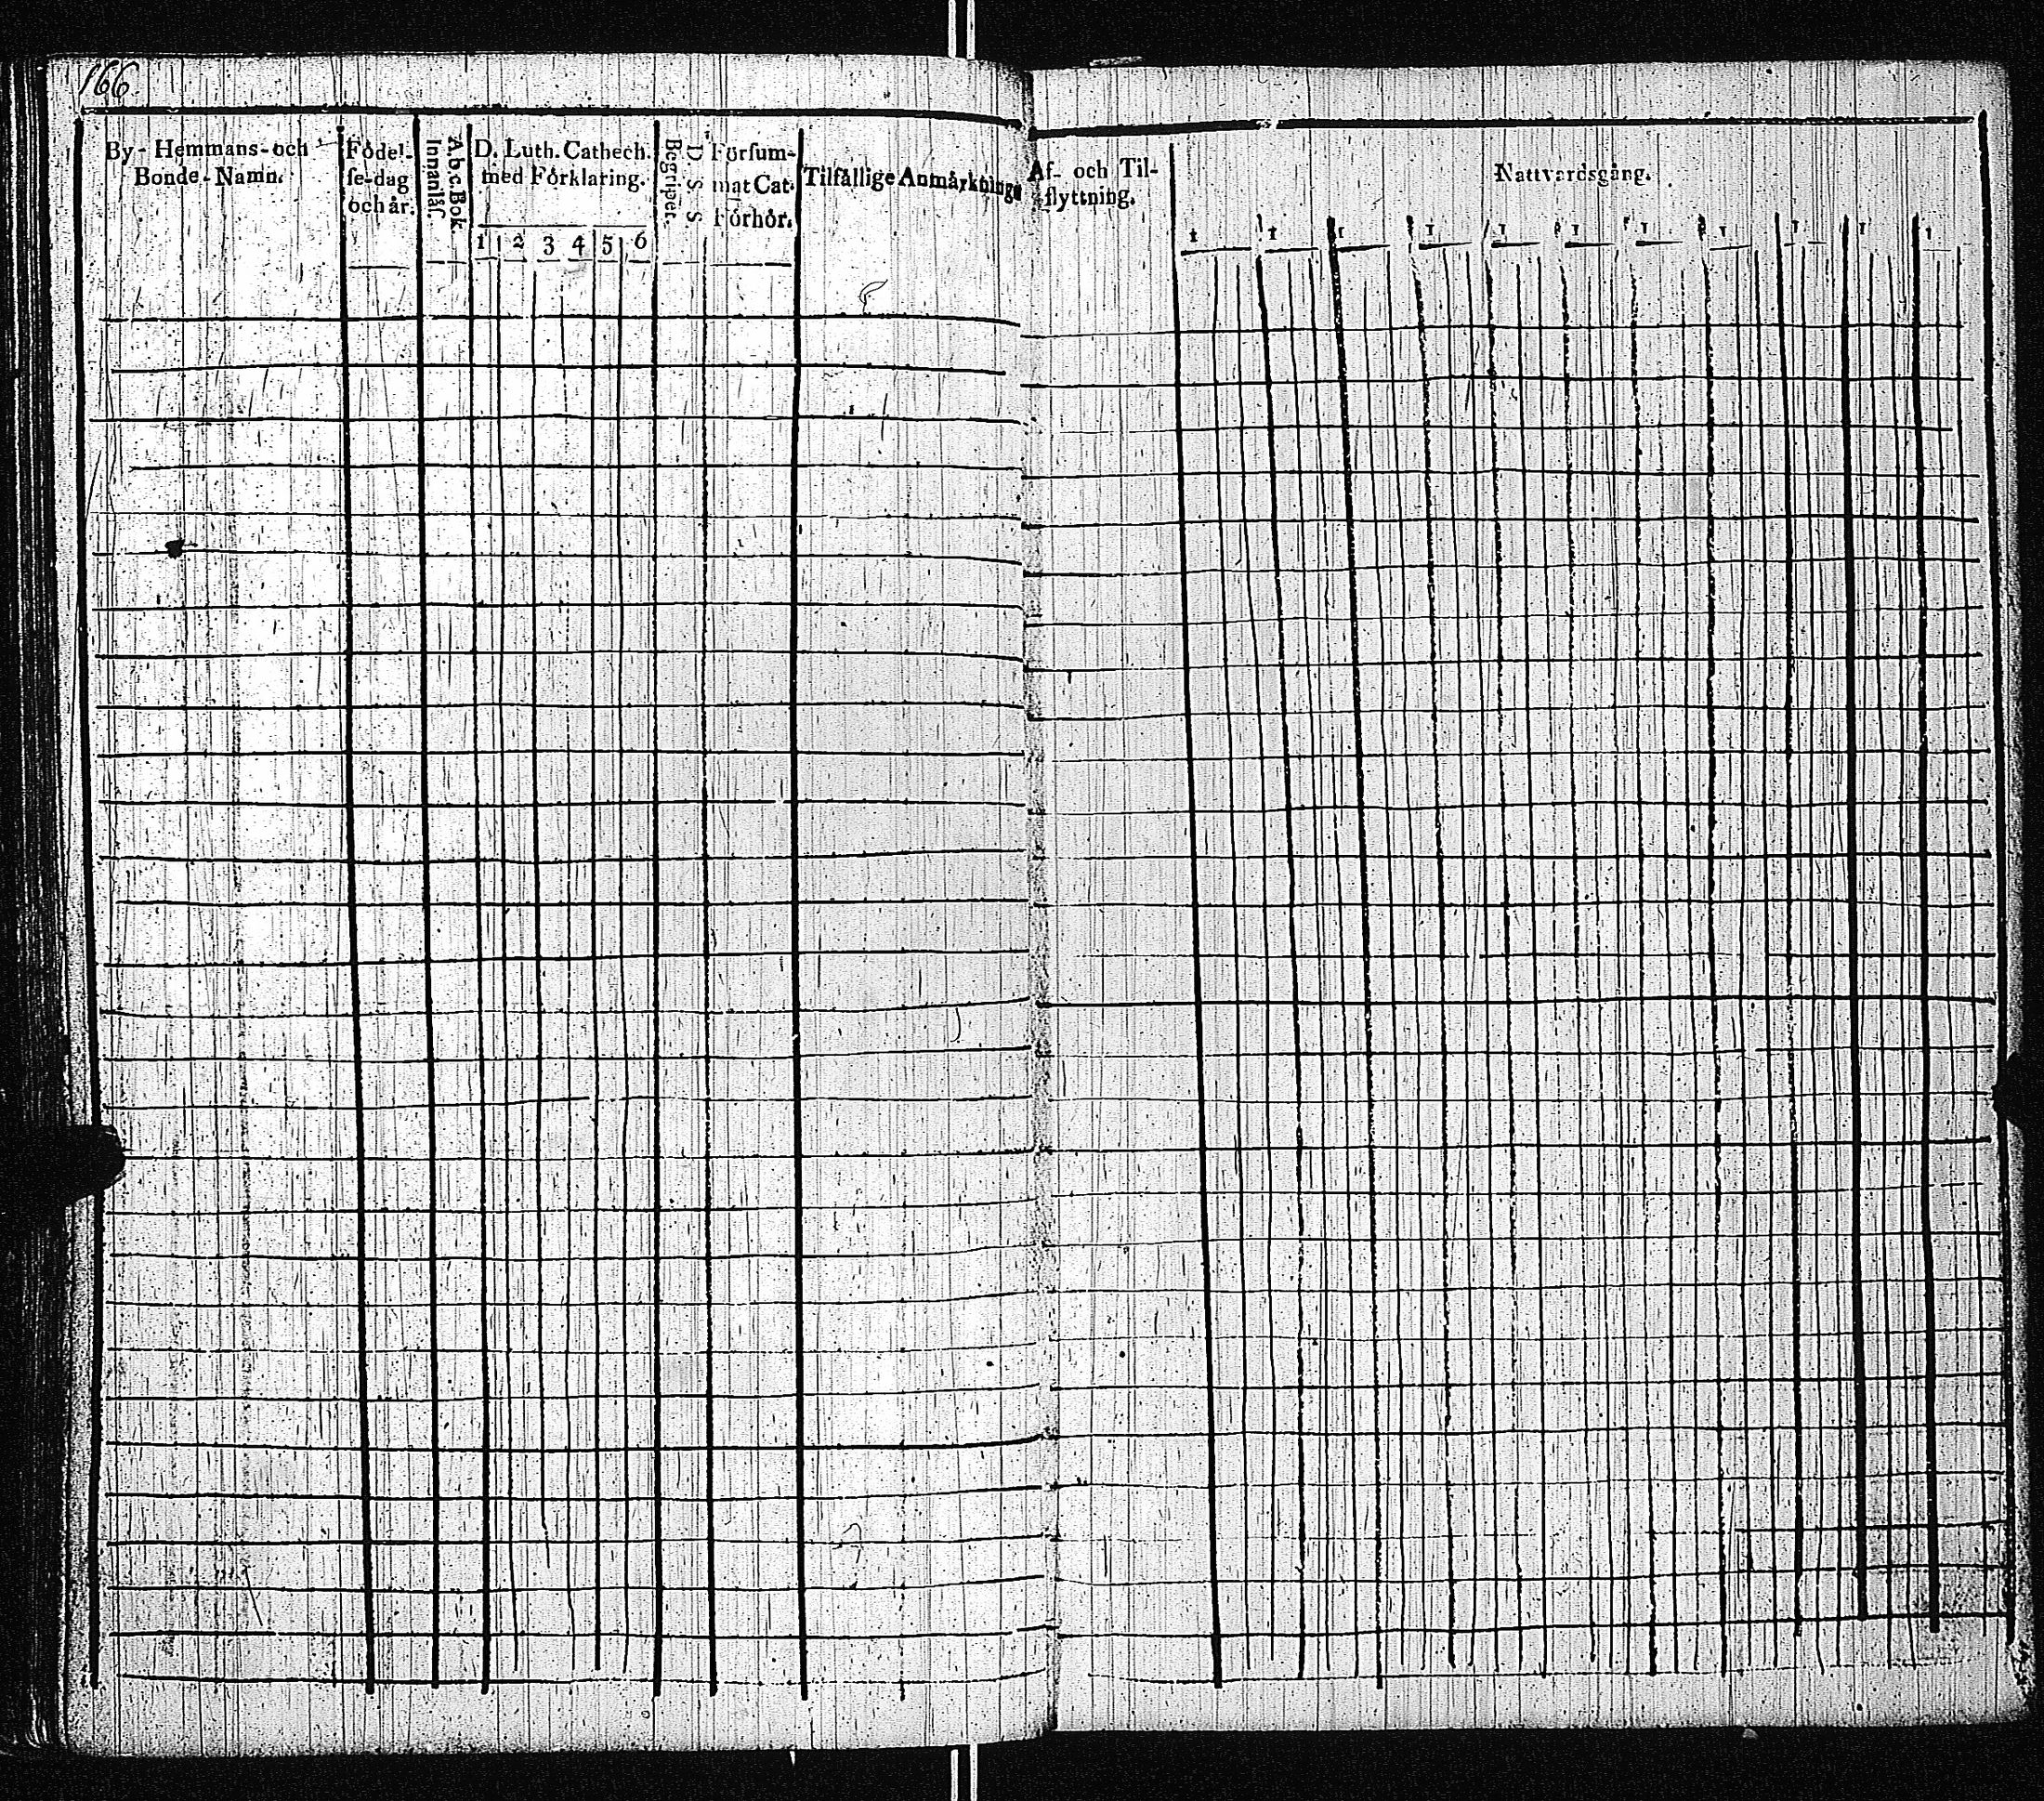 166
By- Hemmans- och
Bonde-Namn.
Födel-
se-dag
och år.
A.b.c.Bok
Innanläs.
D. Luth. Cathech.
med Förklaring.
1 2 3 4 5 6
Begripet.
D. S. S.
Försum-
mat Cat.
Förhör.
Tilfällige Anmärkning
Af- och Til-
flyttning.
Nattvardsgång.
1 1 1 1 1 1 1 1 1 1 1